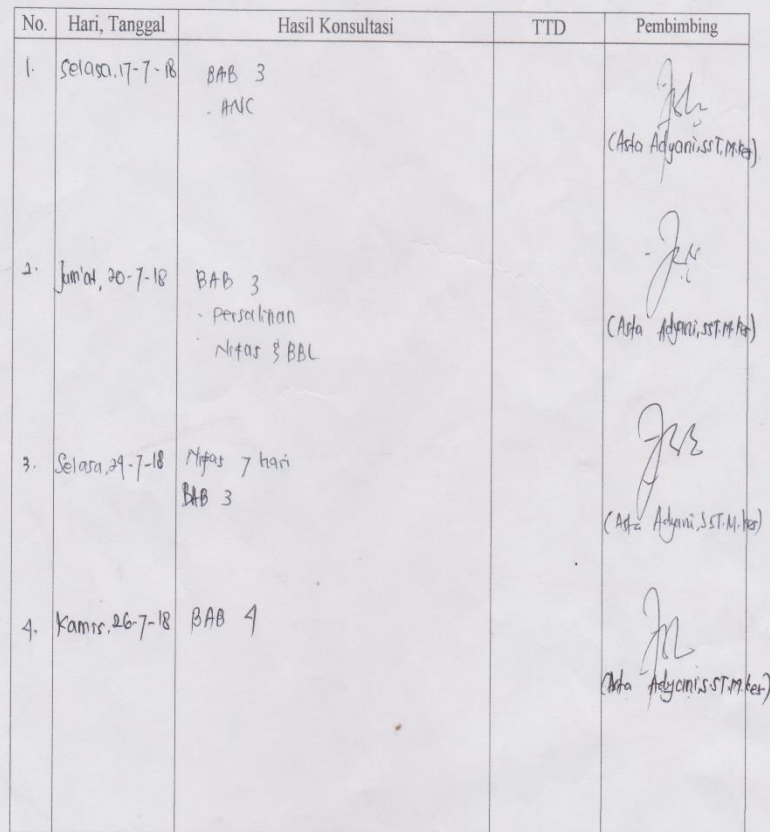 No. Hari, Tanggal Hasil Konsultasi TTD Pembimbing
1. Selasa, 17-7-18 BAB 3
- ANC
(Asta Adyani, SST.M.kes)
2. Jum'at, 20-7-18 BAB 3
- Persalinan
Nifas & BBL
(Asta Adyani, SST.M.kes)
3. Selasa, 24-7-18 Nifas 7 hari
BAB 3
(Asta Adyani, SST.M.kes)
4. Kamis, 26-7-18 BAB 4
(Asta Adyani, S.ST.M.kes)